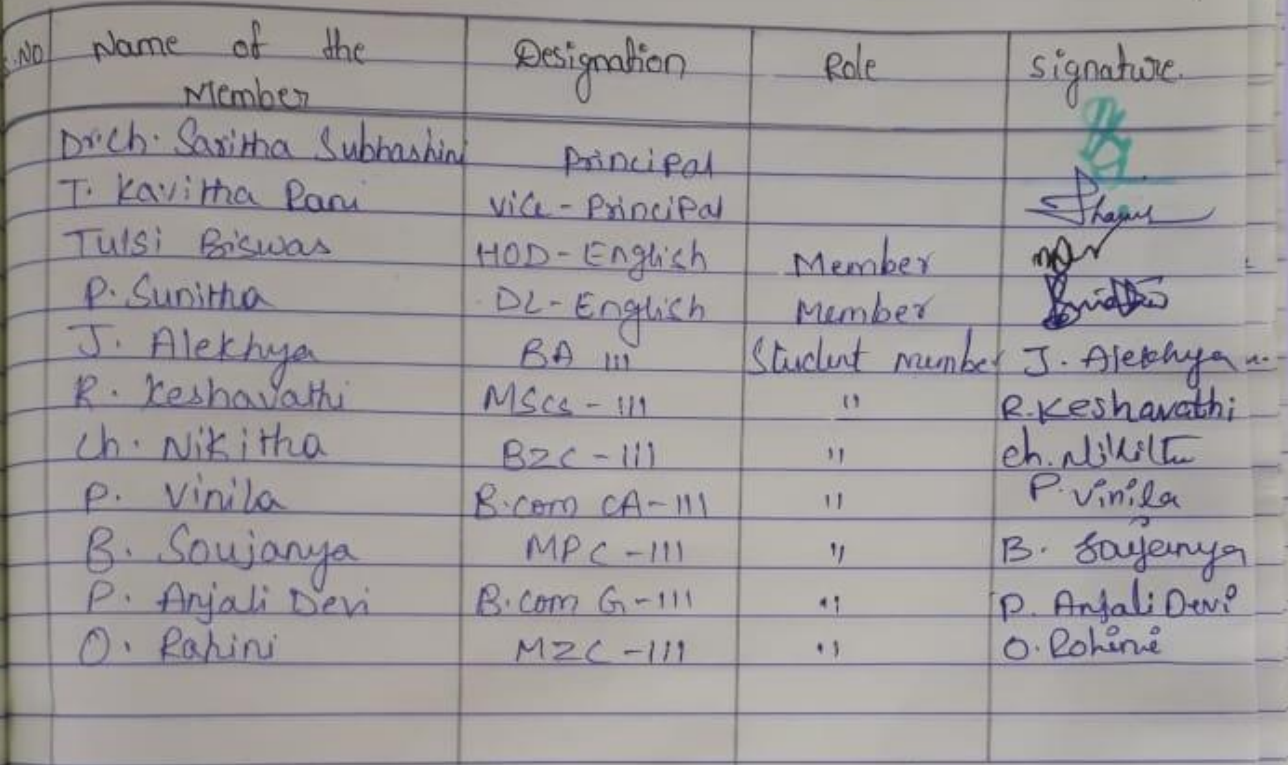 S.NO Name of the Designation Role signature.
Member
Dr.Ch. Saritha Subhashini Principal
T. Kavitha Rani Vice - Principal
Tulsi Biswas HOD - English Member
P. Sunitha DL - English Member
J. Alekhya BA III Student member J. Alekhya
R. Keshavathi MSCs - III " R. Keshavathi
Ch. Nikitha BZC - III " ch. Nikitha
P. Vinila B.com CA - III " P. Vinila
B. Soujanya MPC - III " B. Soujanya
P. Anjali Devi B.com G - III " P. Anjali Devi
O. Rahini MZC - III " O. Rohini